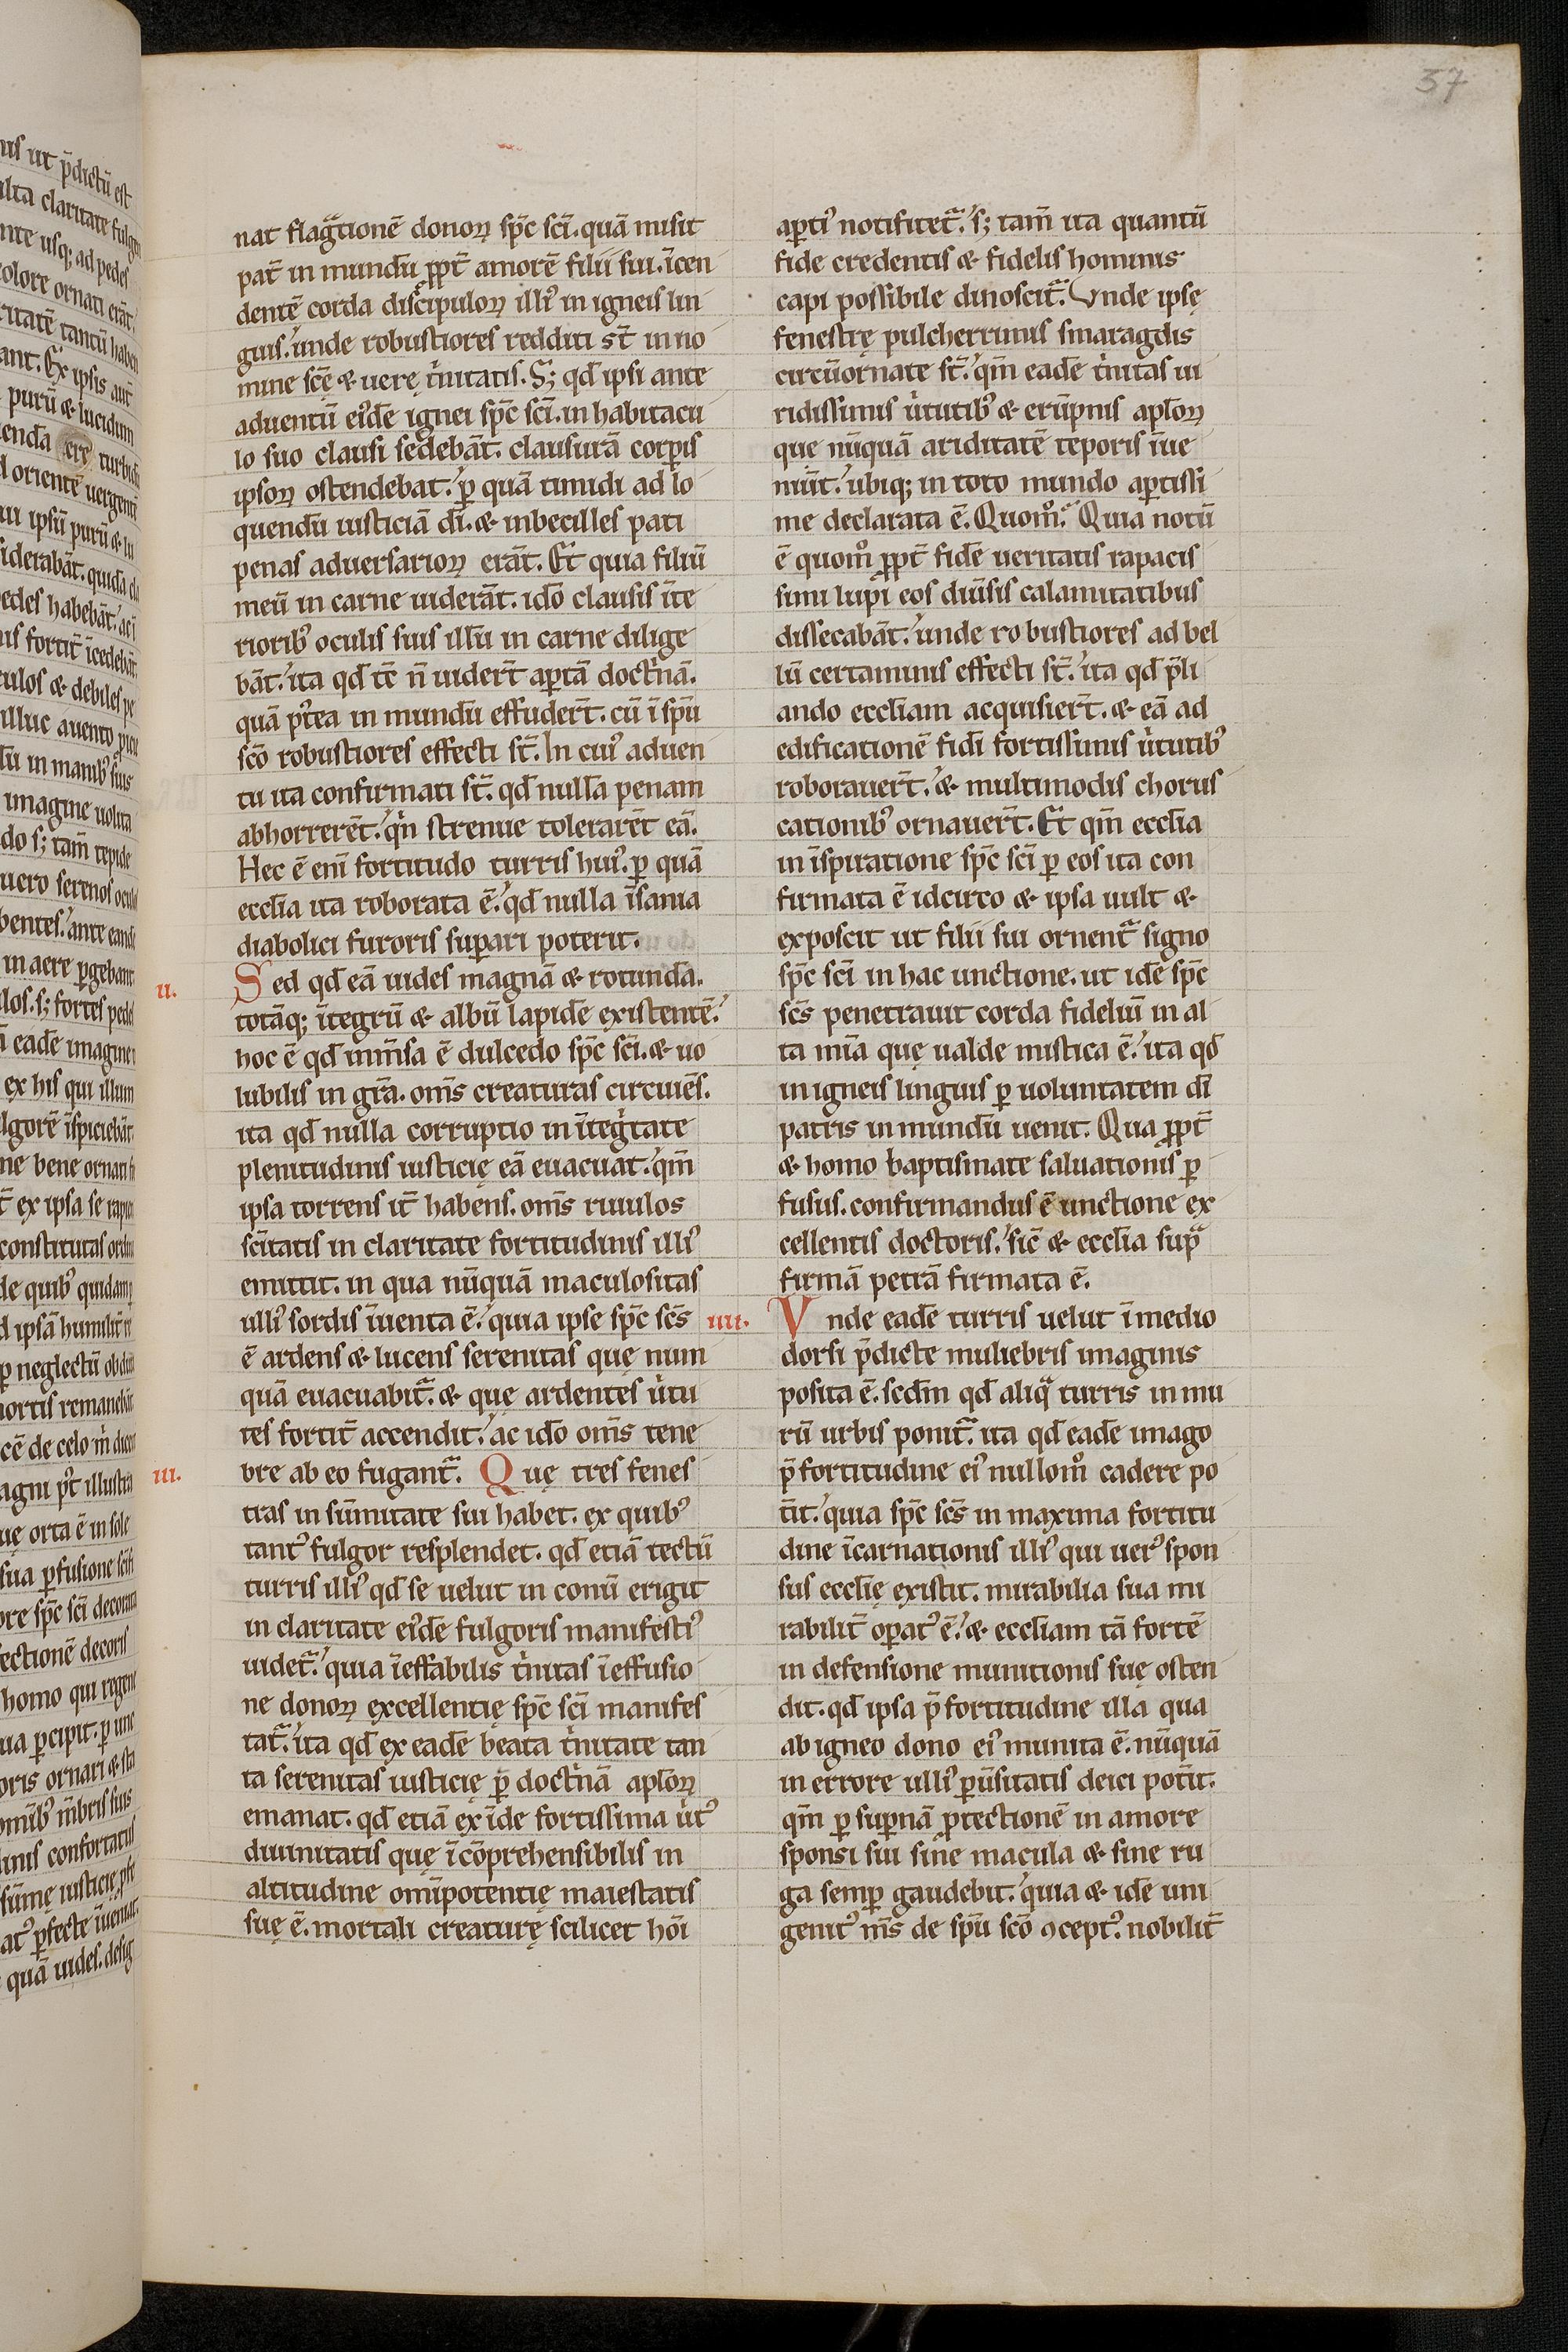 37
nat flag̃tionē donoꝝ sp̄c sc̄i. quā misit
pat̄ in mundū ꝓpt̄ amorē filii sui. īcen
dentē corda discipuloꝝ illiꝰ in igneis lin
guis. unde robustiores redditi st̄ in no
mine scę̄ & uerę t̾nitatis. S; qđ ipsi ante
aduentū eiꝰdē ignei sp̄c sc̄i. in habitacu
lo suo clausi sedebāt. clausurā corꝑis
ipsoꝝ ostendebat. ꝑ quā timidi ad lo
quendū iusticiā dī. & inbecilles pati
penas aduersarioꝝ erāt. Et quia filiū
meū in carne uiderāt. idō clausis īte
rioribꝰ oculis suis illū in carne dilige
bāt. ita qđ tē n̄ uidert̄ aꝑtā doct̾nā.
quā pꝰtea in mundū effudert̄. cū ī spū
scō robustiores effecti st̄. In cuiꝰ aduen
tu ita confirmati st̄. qđ nullā penam
abhorrerēt. q̾n strenue tolerarēt eā.
Hec ē enī fortitudo turris huiꝰ. ꝑ quā
ecclīa ita roborata ē. qđ nulla īsania
diabolici furoris suꝑari poterit.
ii.
Sed qđ eā uides magnā & rotundā.
totāq; ītegrū & albū lapidē existentē.
hoc ē qđ inm̄sa ē dulcedo sp̄c sc̄i. & uo
lubilis in grā. om̄s creaturas circuiēs.
ita qđ nulla corruptio in īteg̾tate
plenitudinis iusticię eā euacuat. qm̄
ipsa torrens it̄ habens. om̄s riuulos
sc̄itatis in claritate fortitudinis illiꝰ
emittit. in qua nūquā maculositas
ulliꝰ sordis īuenta ē. quia ipse sp̄c sc̄s
ē ardens & lucens serenitas quę num
quā euacuabit̃. & quę ardentes u̾tu
tes fortit̄ accendit. ac idō om̄s tene
iii.
bre ab eo fugant̃. Quę tres fenes
tras in sūmitate sui habet. ex quibꝰ
tantꝰ fulgor resplendet. qđ etiā tectū
turris illiꝰ qđ se uelut in conū erigit
in claritate eiꝰdē fulgoris manifestiꝰ
uidet̃. quia īeffabilis t̾nitas ī effusio
ne donoꝝ excellentię sp̄c sc̄i manifes
tat̃. ita qđ ex eadē beata t̾nitate tan
ta serenitas iusticię ꝑ doct̾nā apl̄oꝝ
emanat. qđ etiā ex īde fortissima u̾tꝰ
diuinitatis quę īcōprehensibilis in
altitudine omīpotentię maiestatis
suę ē. mortali creaturę scilicet hōi
aꝑtiꝰ notificet̃. s; tam̄ ita quantū
fide credentis & fidelis hominis
capi possibile dinoscit̃. Vnde ipsę
fenestrę pulcherrimis smaragdis
circūornate st̄. qm̄ eadē t̾nitas ui
ridissimis u̾tutibꝰ & erūpnis apl̄oꝝ
que nūquā ariditatē teporis īue
niūt. ubiq; in toto mundo aꝑtissi
me declarata ē. Quomº. Quia notū
ē quomº ꝓpt̄ fidē ueritatis rapacis
simi lupi eos diūsis calamitatibus
dissecabāt. unde robustiores ad bel
lū certaminis effecti st̄. ita qđ p̄li
ando eccl̄iam acquisiert̄. & eā ad
edificationē fidī fortissimis u̾tutibꝰ
roborauert̄. & multimodis chorus
cationibꝰ ornauert̄. Et qm̄ eccl̄ia
in īspiratione sp̄c sc̄i ꝑ eos ita con
firmata ē idcirco & ipsa uult &
exposcit ut filii sui ornent̃ signo
sp̄c sc̄i in hac unctione. ut idē sp̄c
sc̄s penetrauit corda fideliū in al
ta mīa quę ualde mistica ē. ita qđ
in igneis linguis ꝑ uoluntatem dī
patris in mundū uenit. Qua ꝓpt̄
& homo baptismate saluationis ꝑ
fusus. confirmandus ē unctione ex
cellentis doctoris. sic̄ & eccl̄ia sup̃
firmā petrā firmata ē.
iiii.
Vnde eadē turris uelut ī medio
dorsi p̄dicte muliebris imaginis
posita ē. sedm̄ qđ aliq̃ turris in mu
rū urbis ponit̃. ita qđ eadē imago
p̄ fortitudine eiꝰ nullomº cadere po
t̄it. quia sp̄c sc̄s in maxima fortitu
dine īcarnationis illiꝰ qui uerꝰ spon
sus eccl̄ię existit. mirabilia sua mi
rabilit̄ oꝑatꝰ ē. & eccl̄iam tā fortē
in defensione munitionis suę osten
dit. qđ ipsa p̄ fortitudine illa qua
ab igneo dono eiꝰ munita ē. nūquā
in errore ulliꝰ ꝑūsitatis deici pot̄it.
qm̄ ꝑ suꝑnā ꝓtectionē in amore
sponsi sui sine macula & sine ru
ga semꝑ gaudebit. quia & idē uni
genitꝰ m̄s de spū scō ꝯceptꝰ. nobilit̄